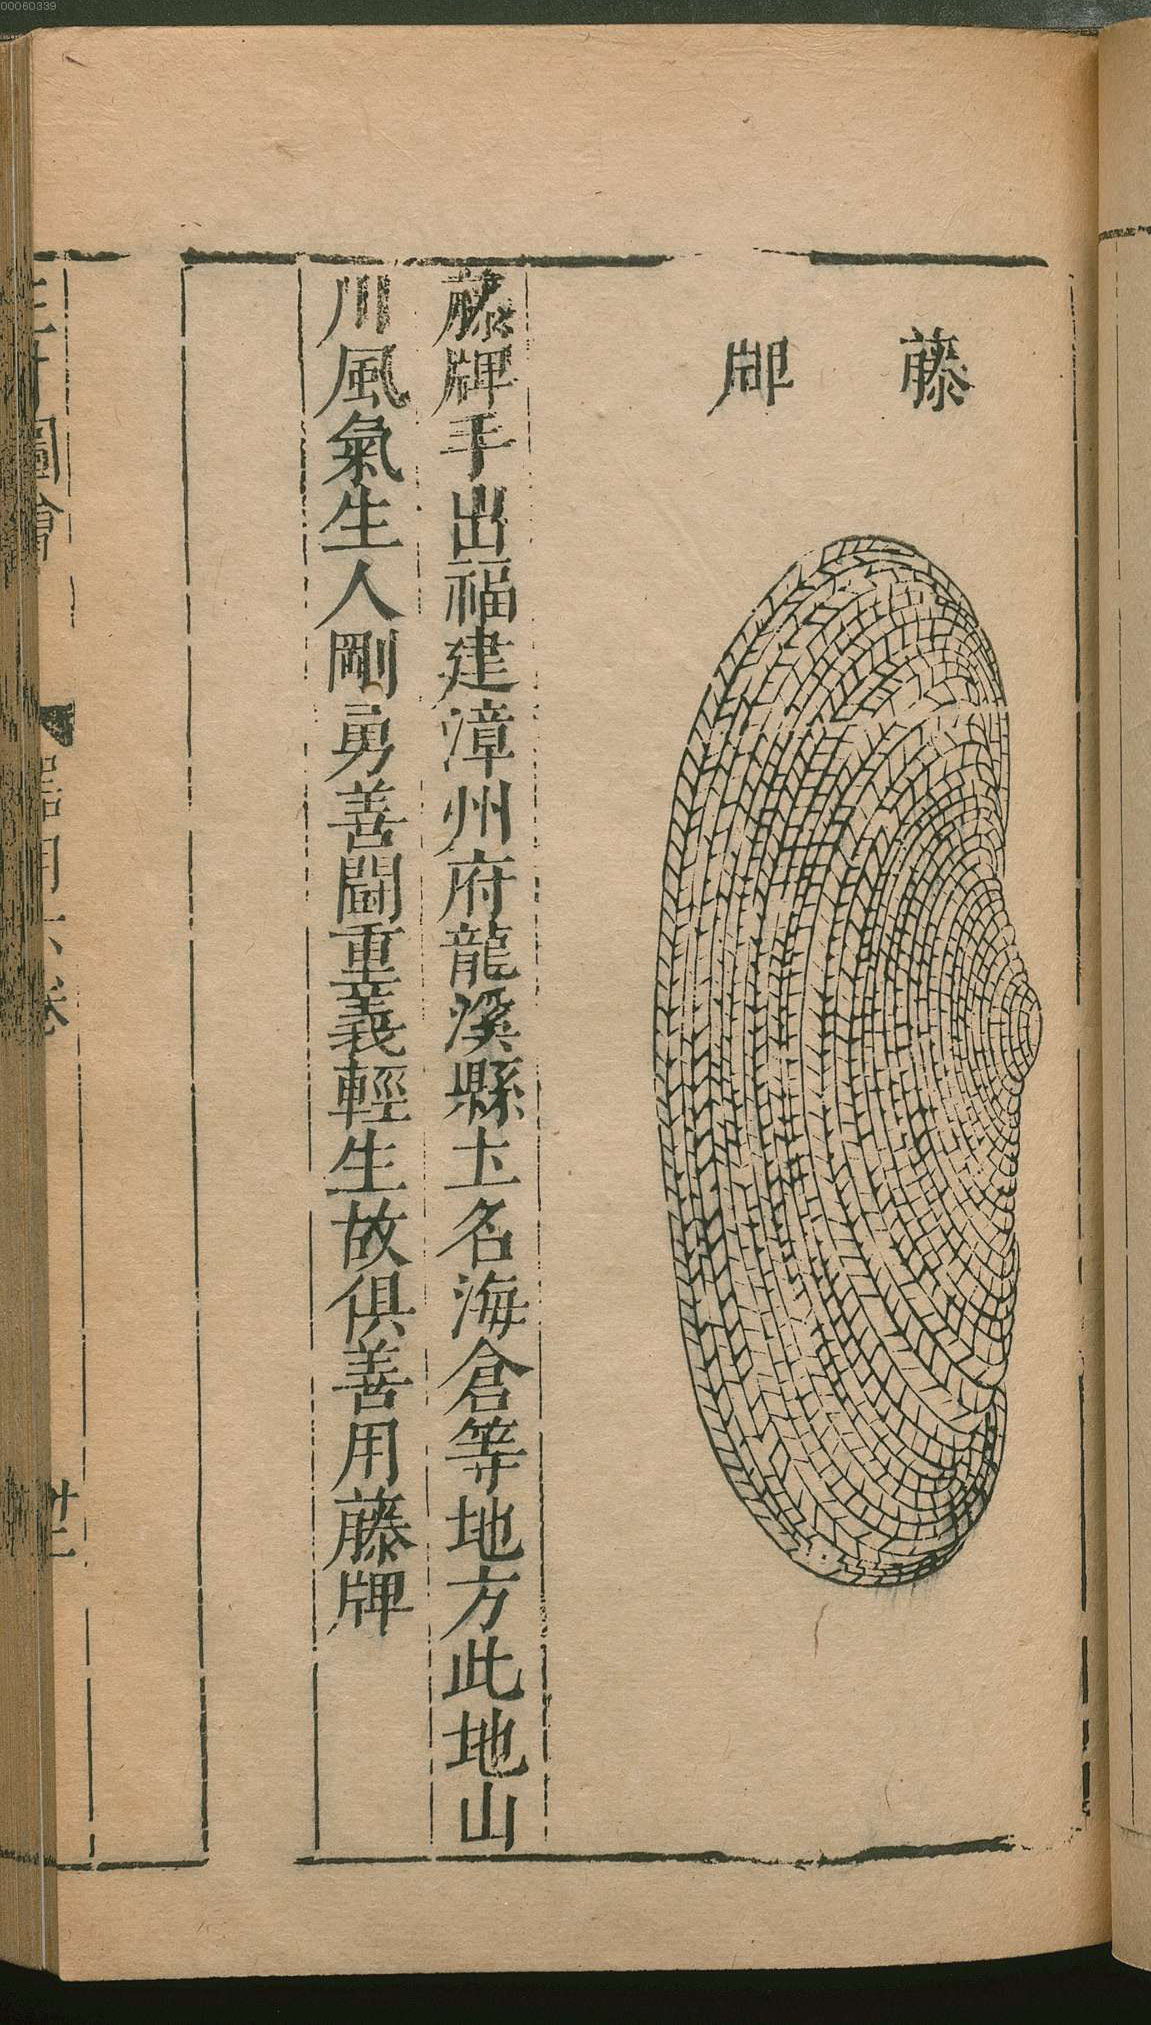 00060339
藤牌
藤牌手出福建漳州府龍溪縣土名海倉等地方此地山
川風氣生人剛勇善鬪重義輕生故俱善用藤牌
圖會
卷